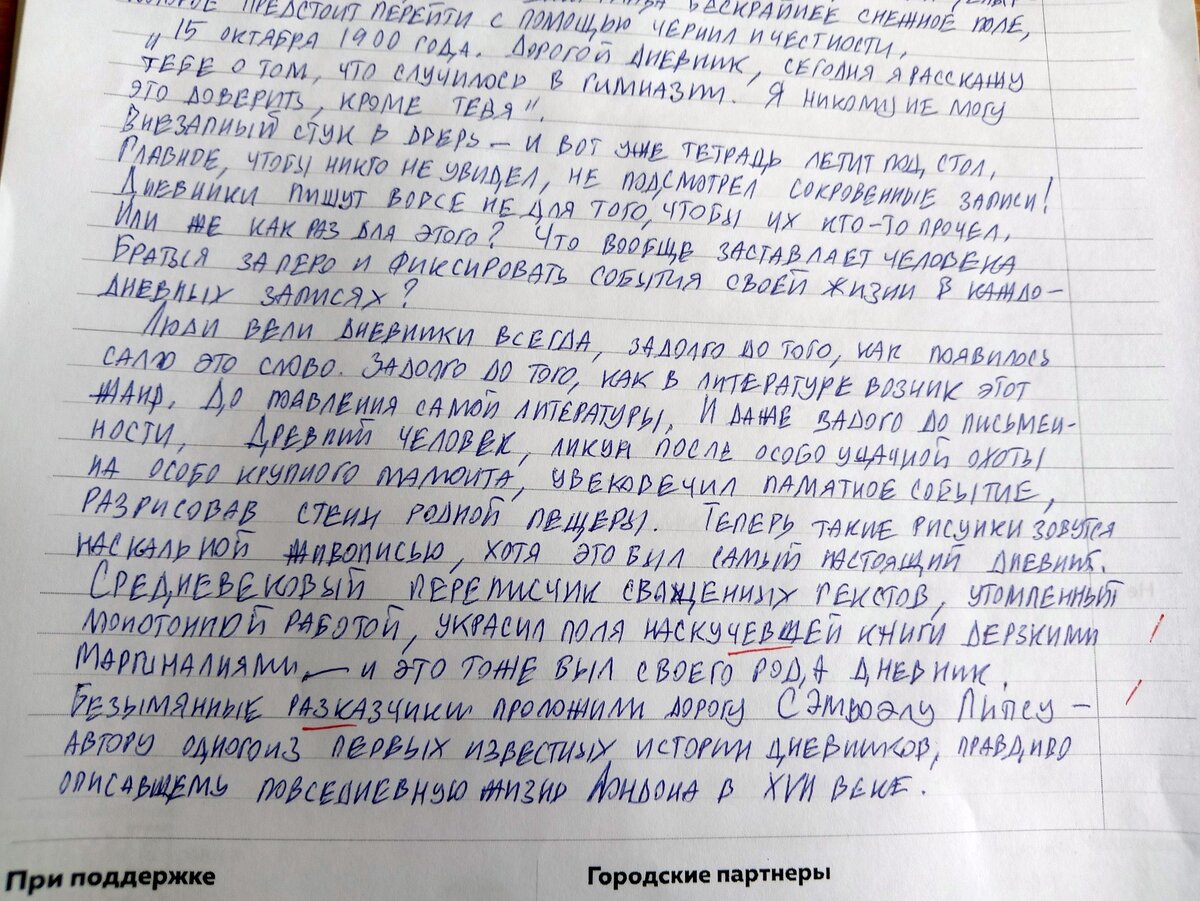 которое предстоит перейти с помощью чернил и честности,
" 15 октября 1900 года. Дорогой дневник, сегодня я расскажу
тебе о том, что случилось в гимназии. Я никому не могу
это доверить, кроме тебя".
Внезапный стук в дверь – и вот уже тетрадь летит под стол,
Главное, чтобы никто не увидел, не подсмотрел сокровенные записи!
Дневники пишут вовсе не для того, чтобы их кто-то прочёл.
Или же как раз для этого? Что вообще заставляет человека
браться за перо и фиксировать события своей жизни в каждо-
дневных записях?
Люди вели дневники всегда, задолго до того, как появилось
само это слово. Задолго до того, как в литературе возник этот
жанр. До появления самой литературы, И даже задого до письмен-
ности, Древний человек, ликуя после особо удачной охоты
на особо крупного мамонта, увековечил памятное событие,
разрисовав стены родной пещеры. Теперь такие рисунки зовутся
наскальной живописью, хотя это был самый настоящий дневник.
Средневековый переписчик священных текстов, утомленный
монотонной работой, украсил поля наскучевшей книги дерзкими
маргиналиями – и это тоже был своего рода дневник.
Безымянные разказчики проложили дорогу Сэмюэлу Пипсу –
автору одного из первых известных истории дневников, правдиво
описавшему повседневную жизнь Лондона в XVII веке.
При поддержке
Городские партнеры